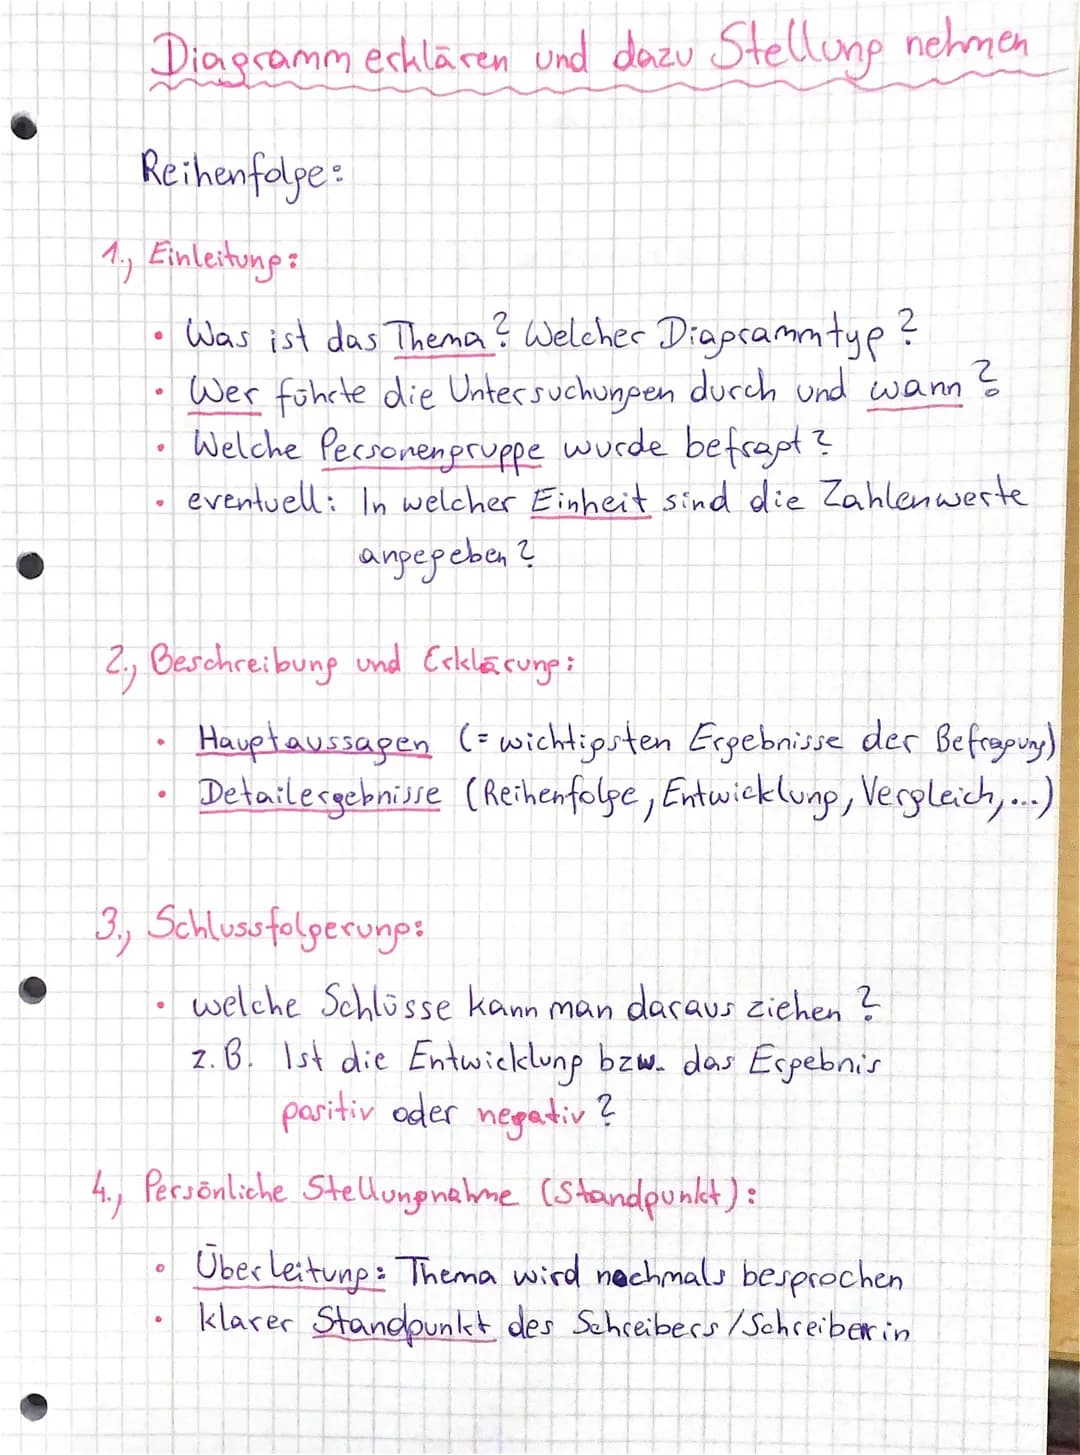 Diagramm erklären und dazu Stellung nehmen
Reihenfolge:
1., Einleitung:
• Was ist das Thema? Welcher Diagrammtyp?
• Wer führte die Untersuchungen durch und wann?
• Welche Personengruppe wurde befragt?
• eventuell: In welcher Einheit sind die Zahlenwerte
angegeben?
2., Beschreibung und Erklärung:
• Hauptaussagen (= wichtigsten Ergebnisse der Befragung)
• Detailergebnisse (Reihenfolge, Entwicklung, Vergleich,...)
3., Schlussfolgerung:
• welche Schlüsse kann man daraus ziehen?
z.B. Ist die Entwicklung bzw. das Ergebnis
positiv oder negativ?
4., Persönliche Stellungnahme (Standpunkt):
• Überleitung: Thema wird nochmals besprochen
• klarer Standpunkt des Schreibers/Schreiberin